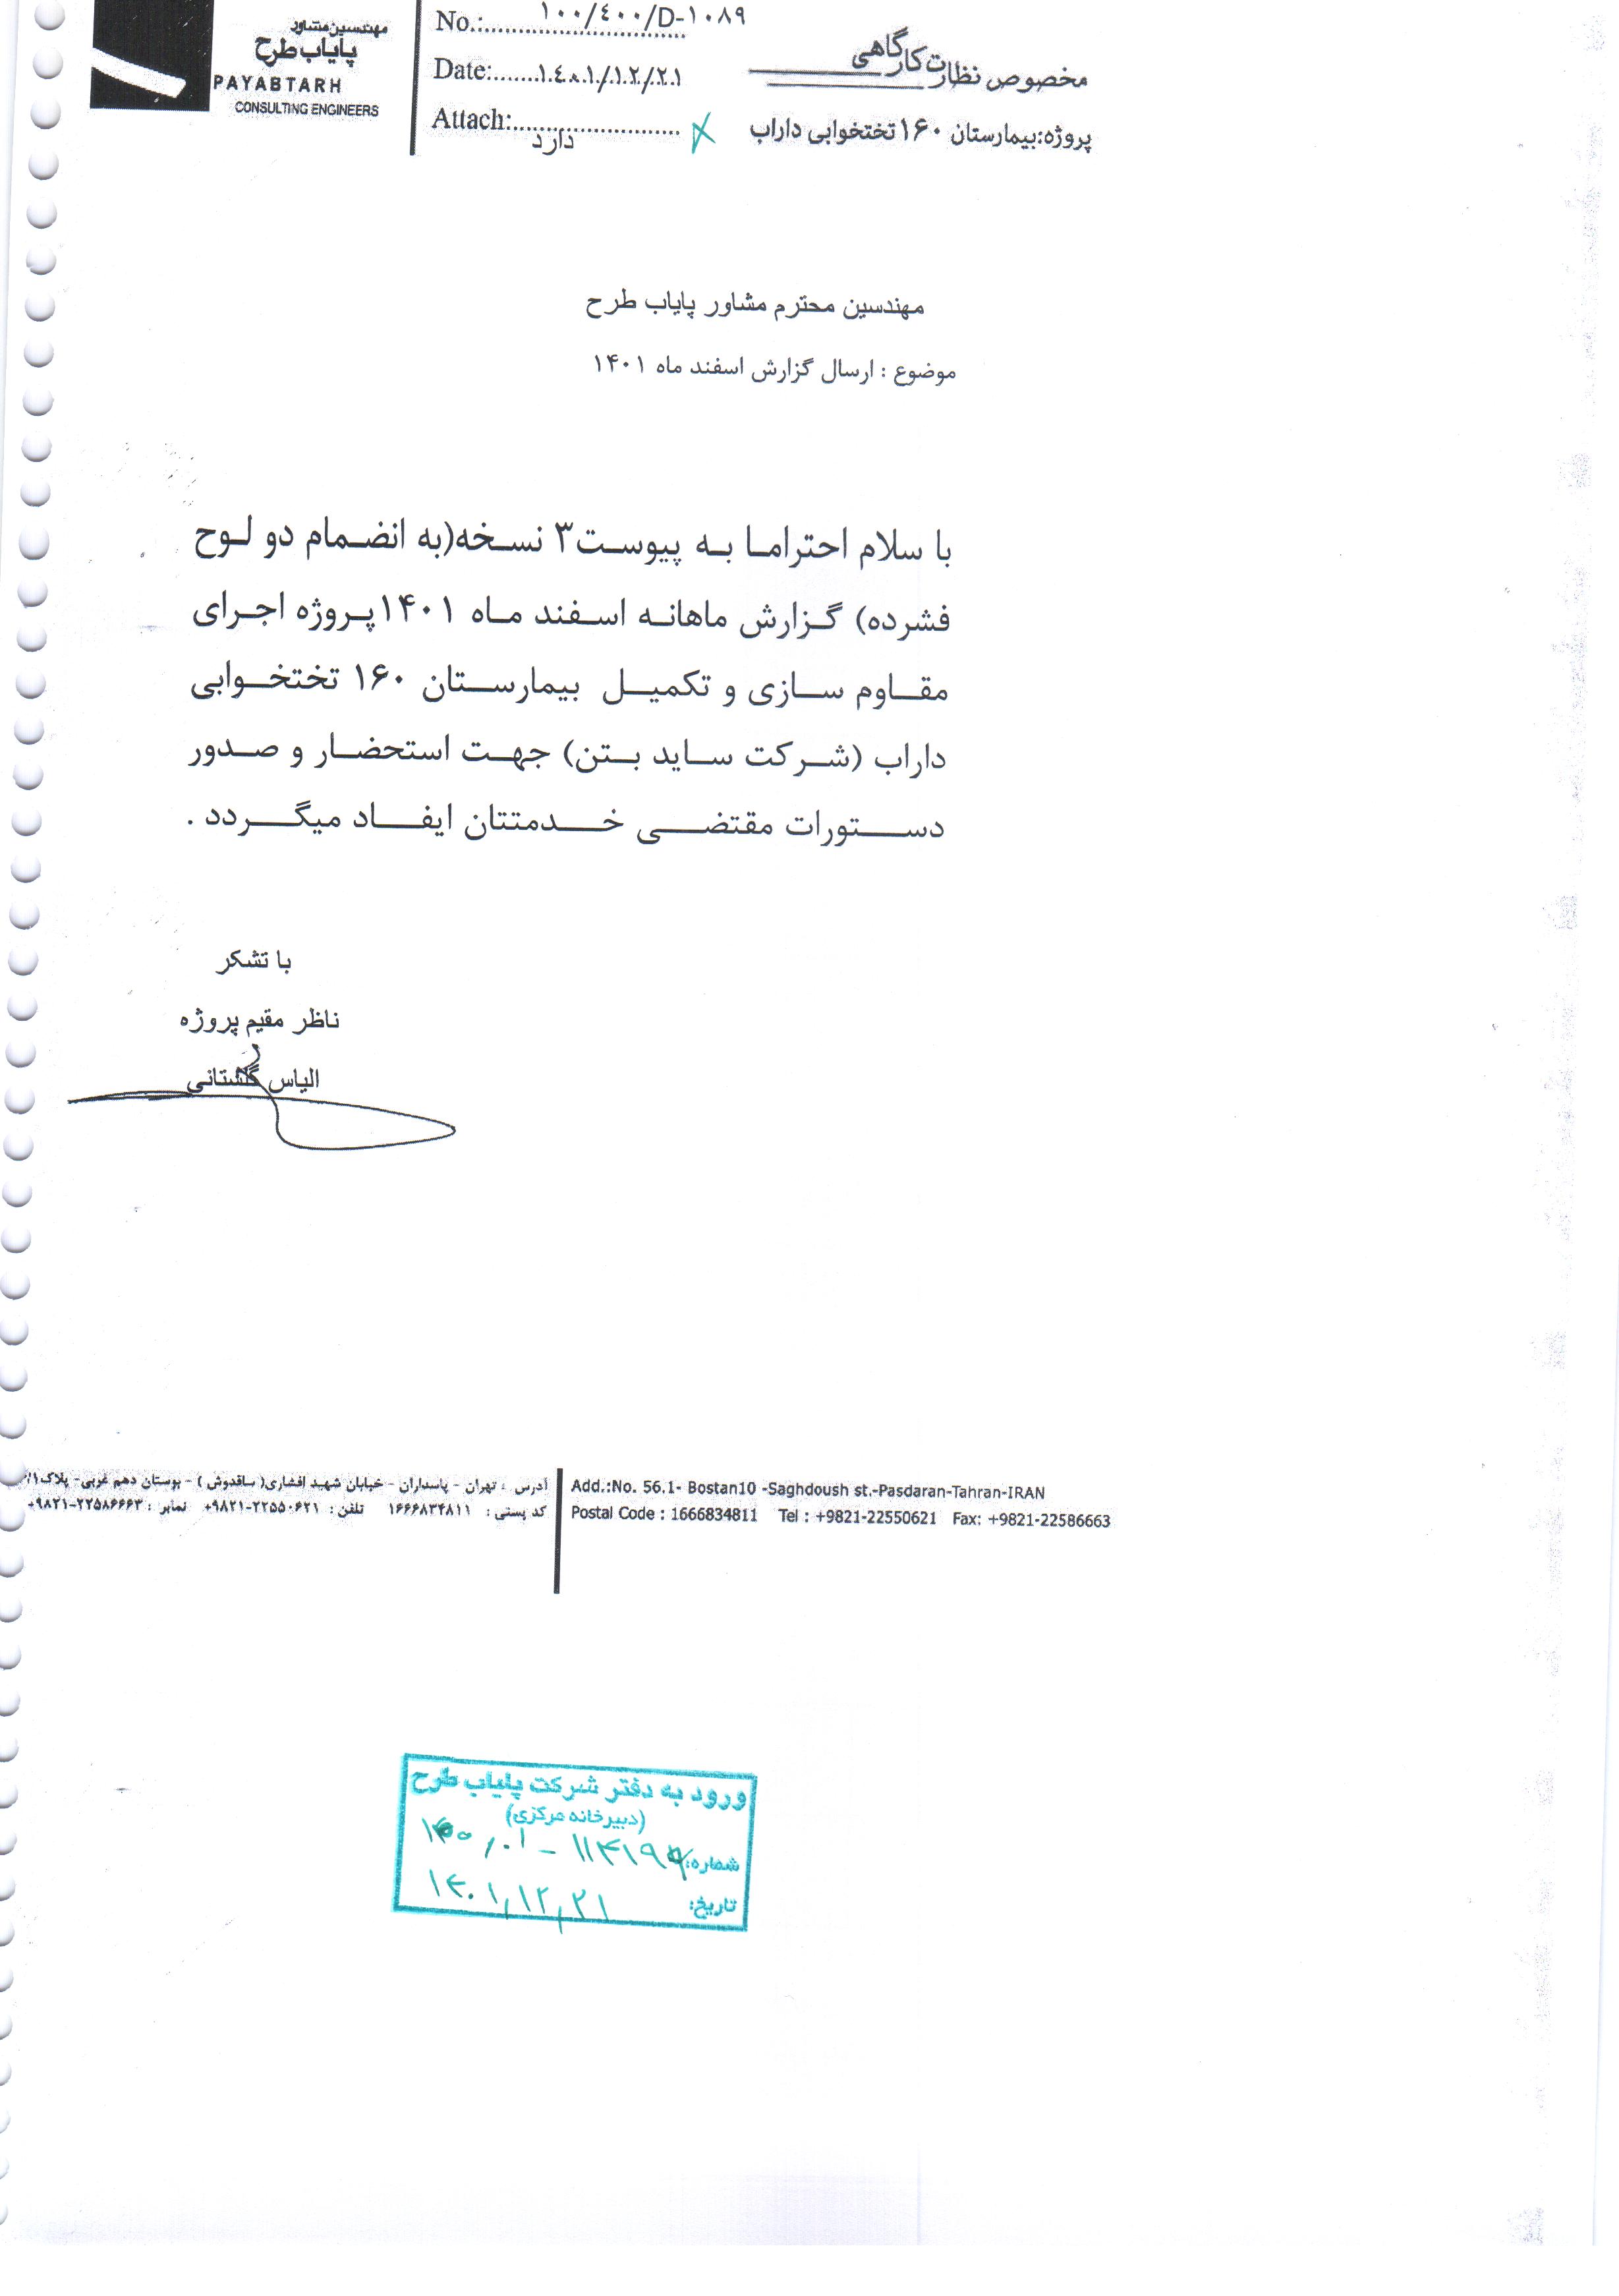 مهندسین مشاور
پایاب طرح
PAYABTARH
CONSULTING ENGINEERS
No.:.......۱۰۰/٤۰۰/D-۱۰۸۹
Date:.......۱٤۰۱/۱۲/۲۱
Attach:.......دارد
مخصوص نظارت کارگاهی
پروژه:بیمارستان ۱۶۰ تختخوابی داراب
مهندسین محترم مشاور پایاب طرح
موضوع : ارسال گزارش اسفند ماه ۱۴۰۱
با سلام احتراما به پیوست۳ نسخه(به انضمام دو لوح
فشرده) گزارش ماهانه اسفند ماه ۱۴۰۱پروژه اجرای
مقاوم سازی و تکمیل بیمارستان ۱۶۰ تختخوابی
داراب (شرکت ساید بتن) جهت استحضار و صدور
دستورات مقتضی خدمتتان ایفاد میگردد .
با تشکر
ناظر مقیم پروژه
الیاس گلستانی
آدرس : تهران - پاسداران - خیابان شهید افشاری( ساقدوش ) - بوستان دهم غربی- پلاک
کد پستی : ۱۶۶۶۸۳۴۸۱۱ تلفن : ۲۲۵۵۰۶۲۱-۹۸۲۱+ نمابر : ۲۲۵۸۶۶۶۳-۹۸۲۱+
Add.:No. 56.1- Bostan10 -Saghdoush st.-Pasdaran-Tahran-IRAN
Postal Code : 1666834811 Tel : +9821-22550621 Fax: +9821-22586663
ورود به دفتر شرکت پایاب طرح
(دبیرخانه مرکزی)
شماره:
تاریخ: ۱۴۰۱,۱۲,۲۱